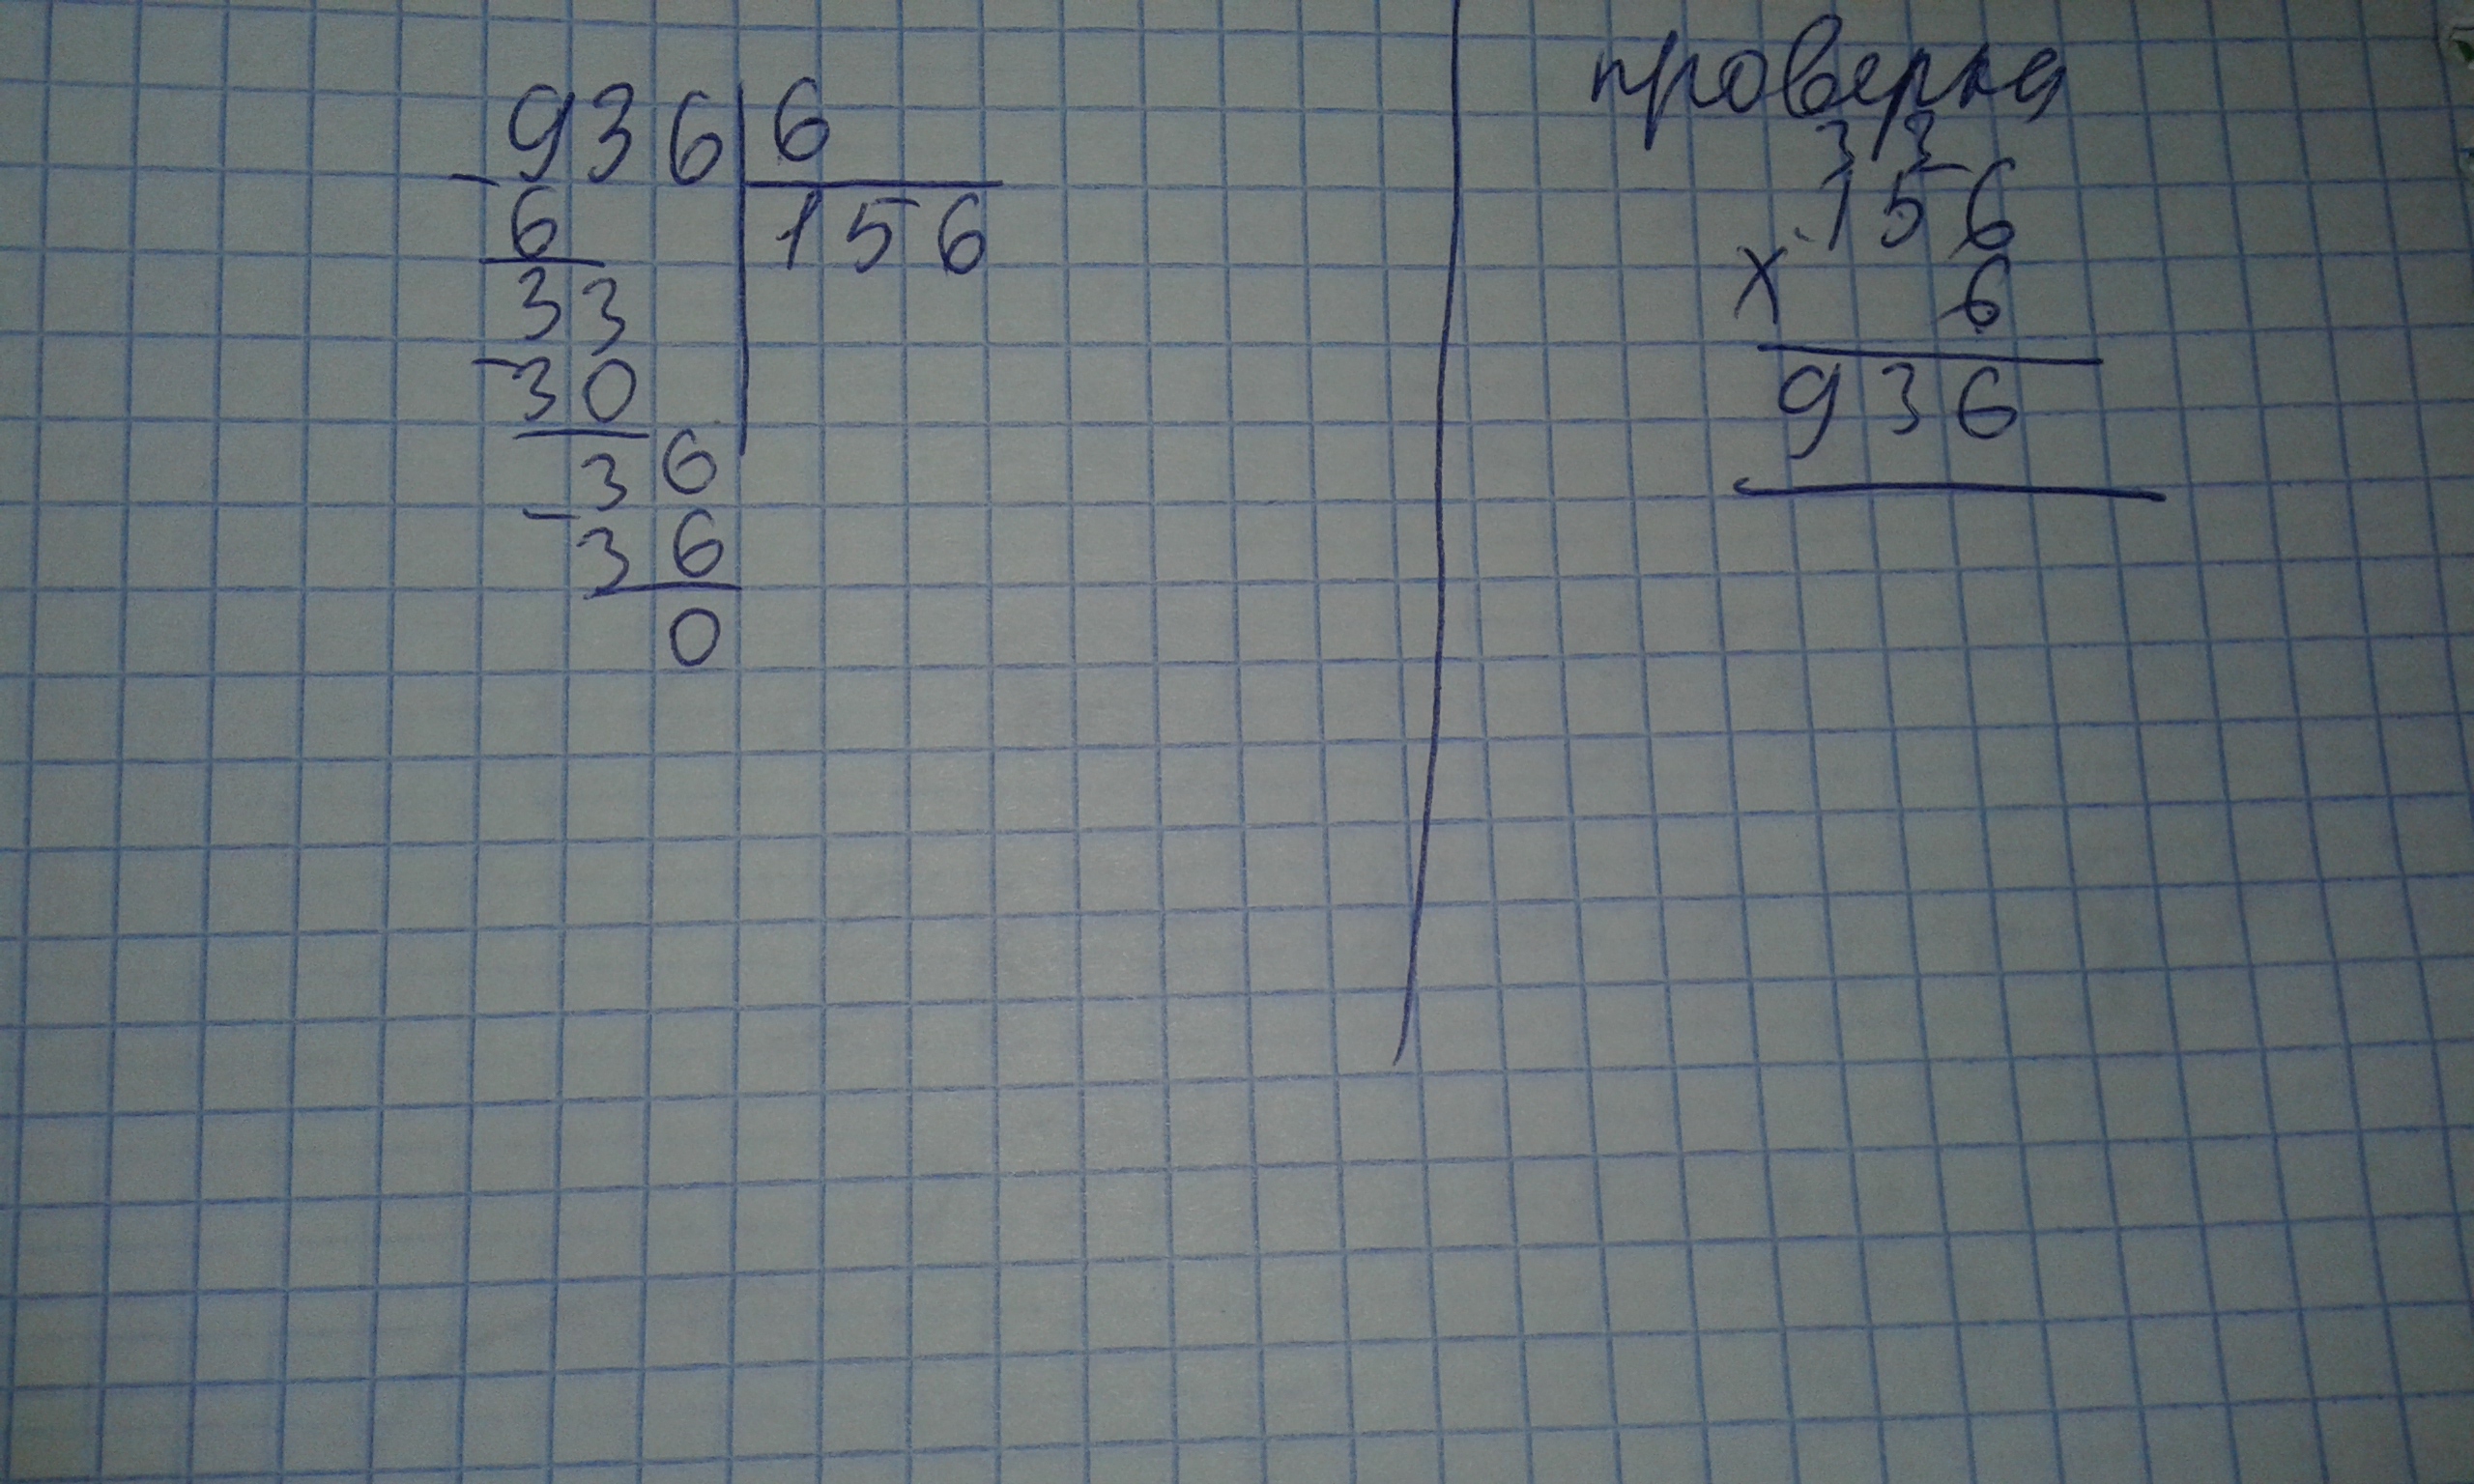 936 | 6
- 6 | 156
33
- 30
36
- 36
0
проверка
33
156
x 6
936